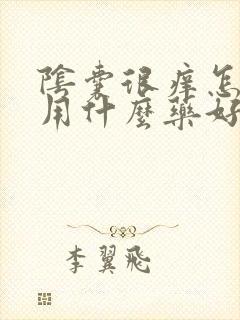 陰囊很癢怎
用什麼藥好
李翼飛